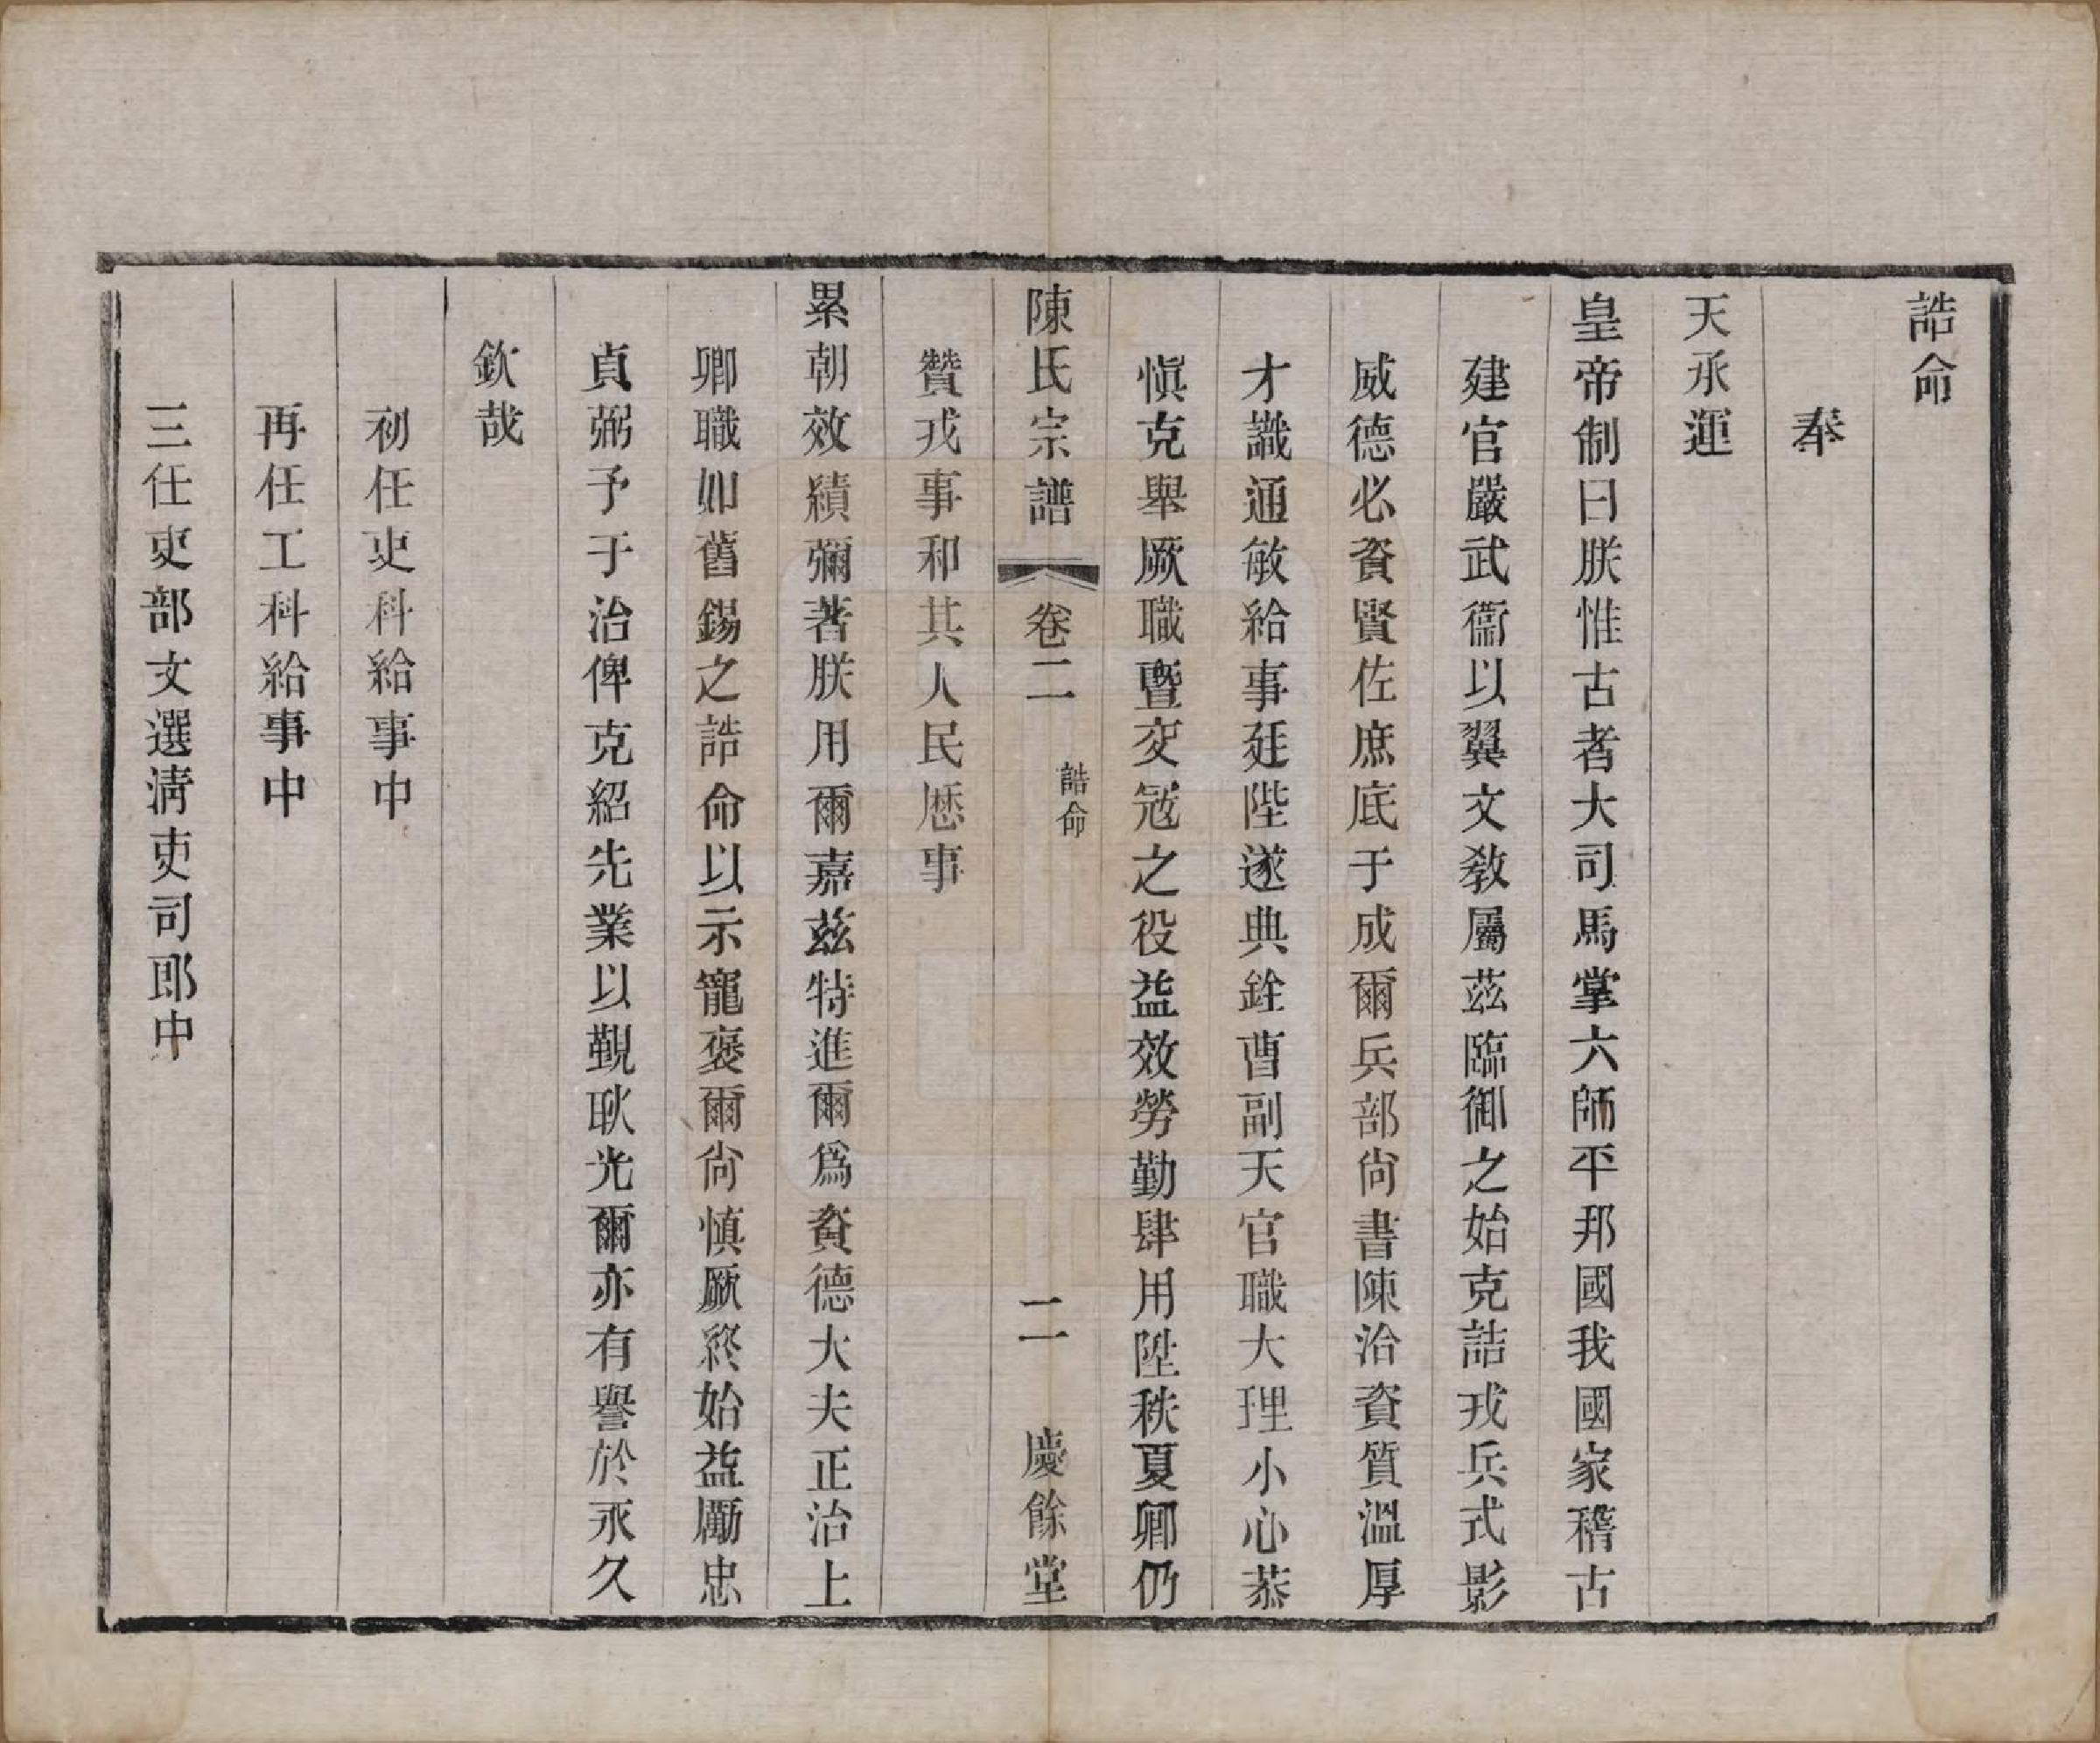 誥命
奉
天承運
皇帝制曰朕惟古者大司馬掌六師平邦國我國家稽古
建官嚴武衞以翼文敎屬茲臨御之始克詰戎兵式影
威德必資賢佐庶底于成爾兵部尙書陳治資質溫厚
才識通敏給事廷陛遂典銓曹副天官職大理小心恭
愼克舉厥職暨交冦之役益效勞勤肆用陞秩夏卿仍
陳氏宗譜 卷二 誥命 二 慶餘堂
贊戎事和其人民厯事
累朝效績彌著朕用爾嘉兹特進爾爲資德大夫正治上
卿職如舊錫之誥命以示寵褒爾尙愼厥終始益勵忠
貞弼予于治俾克紹先業以覲耿光爾亦有譽於永久
欽哉
初任吏科給事中
再任工科給事中
三仕吏部文選淸吏司郎中